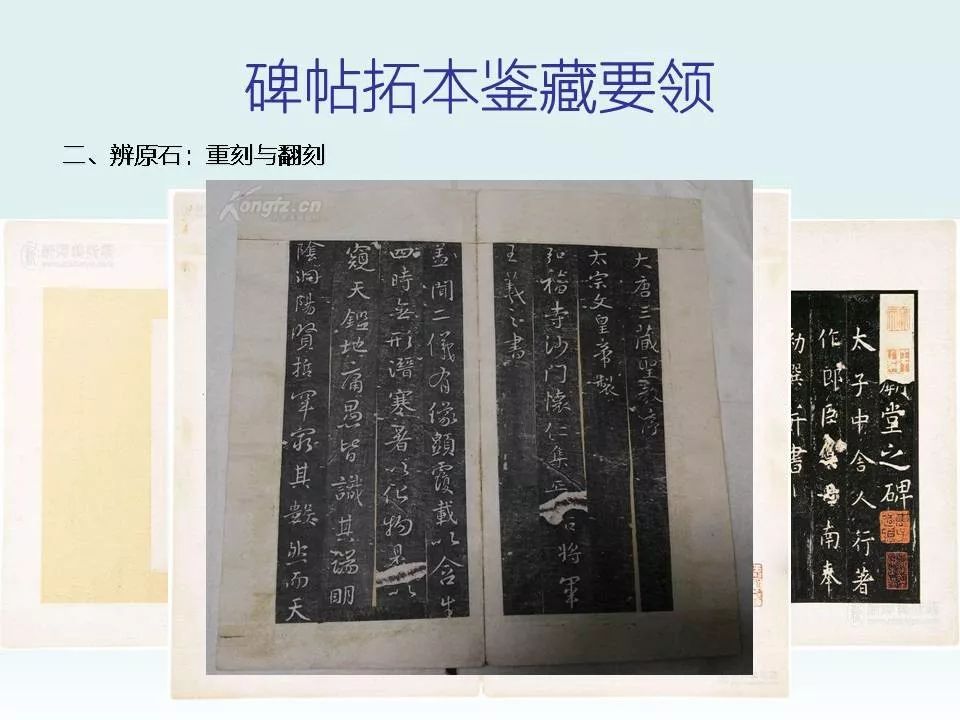 碑帖拓本鉴藏要领
二、辨原石：重刻与翻刻
Kongfz.cn
大唐三藏聖教序
太宗文皇帝製
弘福寺沙門懷仁集 右將軍
王羲之書
蓋聞二儀有像顯覆載以含生
四時無形潛寒暑以化物是以
窺天鑑地庸愚皆識其端明
陰洞陽賢哲罕窮其數然而天
廟堂之碑
太子中舍人行著
作郎臣虞世南奉
勅撰并書